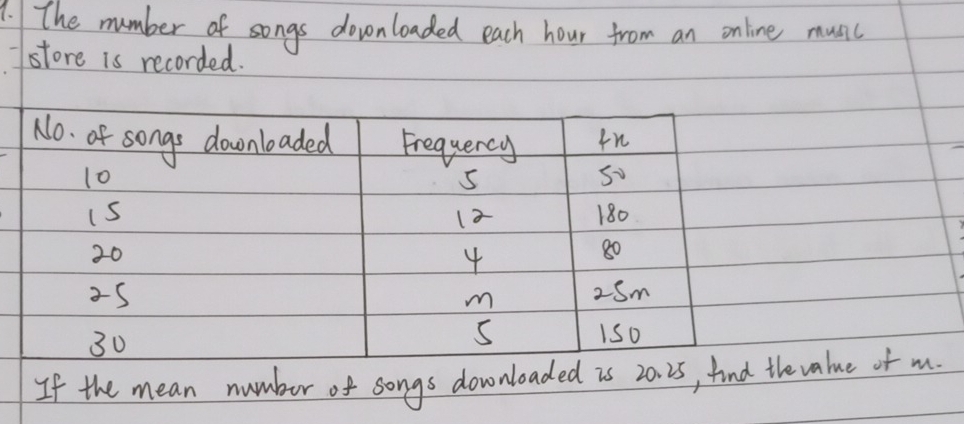 1. The number of songs downloaded each hour from an online music
store is recorded.
No. of songs downloaded Frequency fx
10 5 50
15 12 180
20 4 80
25 m 25m
30 5 150
If the mean number of songs downloaded is 20.25, find the value of m.